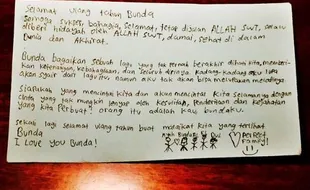 Selamat ulang tahun Bunda
Semoga sukses, bahagia, selamat, tetap dijalan ALLAH SWT, selalu
diberi hidayah oleh ALLAH SWT, damai, sehat di dalam
Dunia dan Akhirat.
Bunda bagaikan sebuah lagu yang tak pernah berakhir dihati kita, memberi-
kan ketenangan, kebahagiaan, dan seluruh dirinya. Kadang-kadang aku lupa
akan syair dari lagu itu, namun aku tak akan bisa melupakan melodinya.
Siapakah yang menyayangi kita dan akan mencintai kita selamanya dengan
cinta yang tak mungkin lenyap oleh kesulitan, penderitaan dan kejahatan
yang kita perbuat? orang itu adalah kau bundaku.
sekali lagi selamat ulang tahun buat malaikat kita yang terlihat
Bunda
I Love you Bunda!
Perfect
Family!